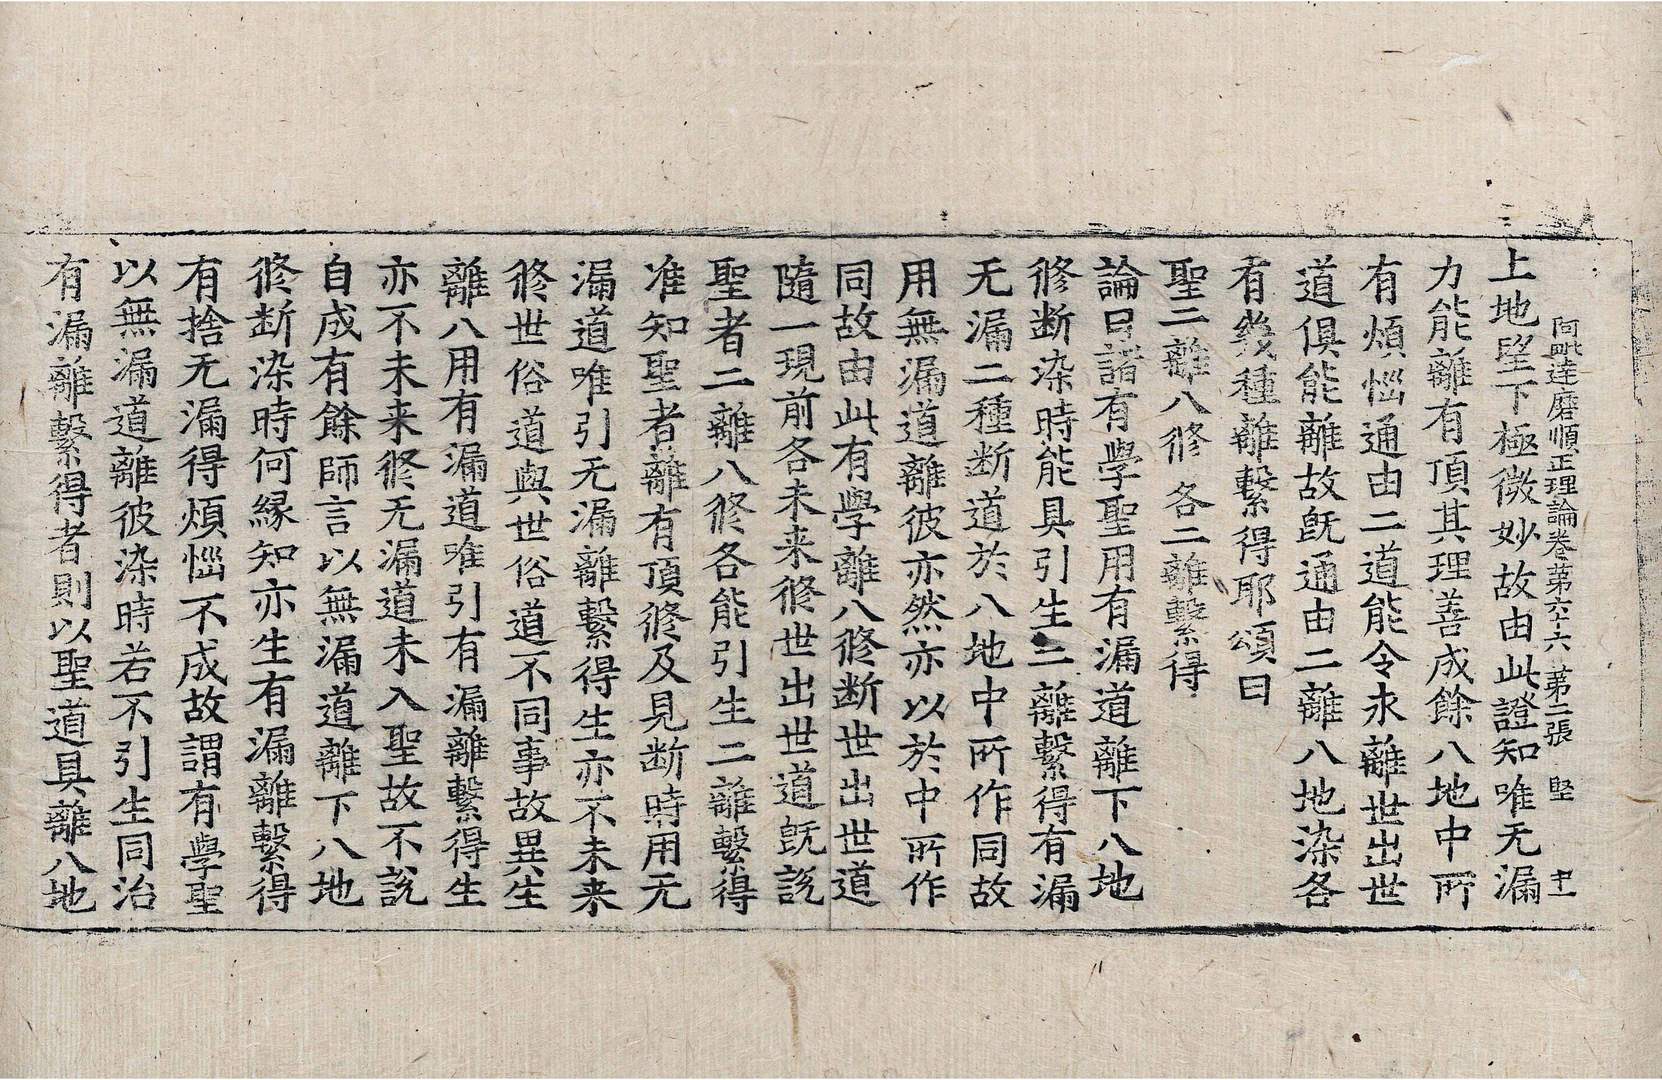 阿毗達磨順正理論卷苐六十六 苐二張 堅 中一
上地望下極微妙故由此證知唯无漏
力能離有頂其理善成餘八地中所
有煩惱通由二道能令永離世出世
道俱能離故旣通由二離八地染各
有幾種離繫得耶頌曰
聖二離八修 各二離繫得
論曰諸有學聖用有漏道離下八地
修断染時能具引生二離繫得有漏
无漏二種断道於八地中所作同故
用無漏道離彼亦然亦以於中所作
同故由此有學離八修断世出世道
隨一現前各未来修世出世道旣說
聖者二離八修各能引生二離繫得
准知聖者離有頂修及見断時用无
漏道唯引无漏離繫得生亦不未来
修世俗道與世俗道不同事故異生
離八用有漏道唯引有漏離繫得生
亦不未来修无漏道未入聖故不說
自成有餘師言以無漏道離下八地
修断染時何緣知亦生有漏離繫得
有捨无漏得煩惱不成故謂有學聖
以無漏道離彼染時若不引生同治
有漏離繫得者則以聖道具離八地